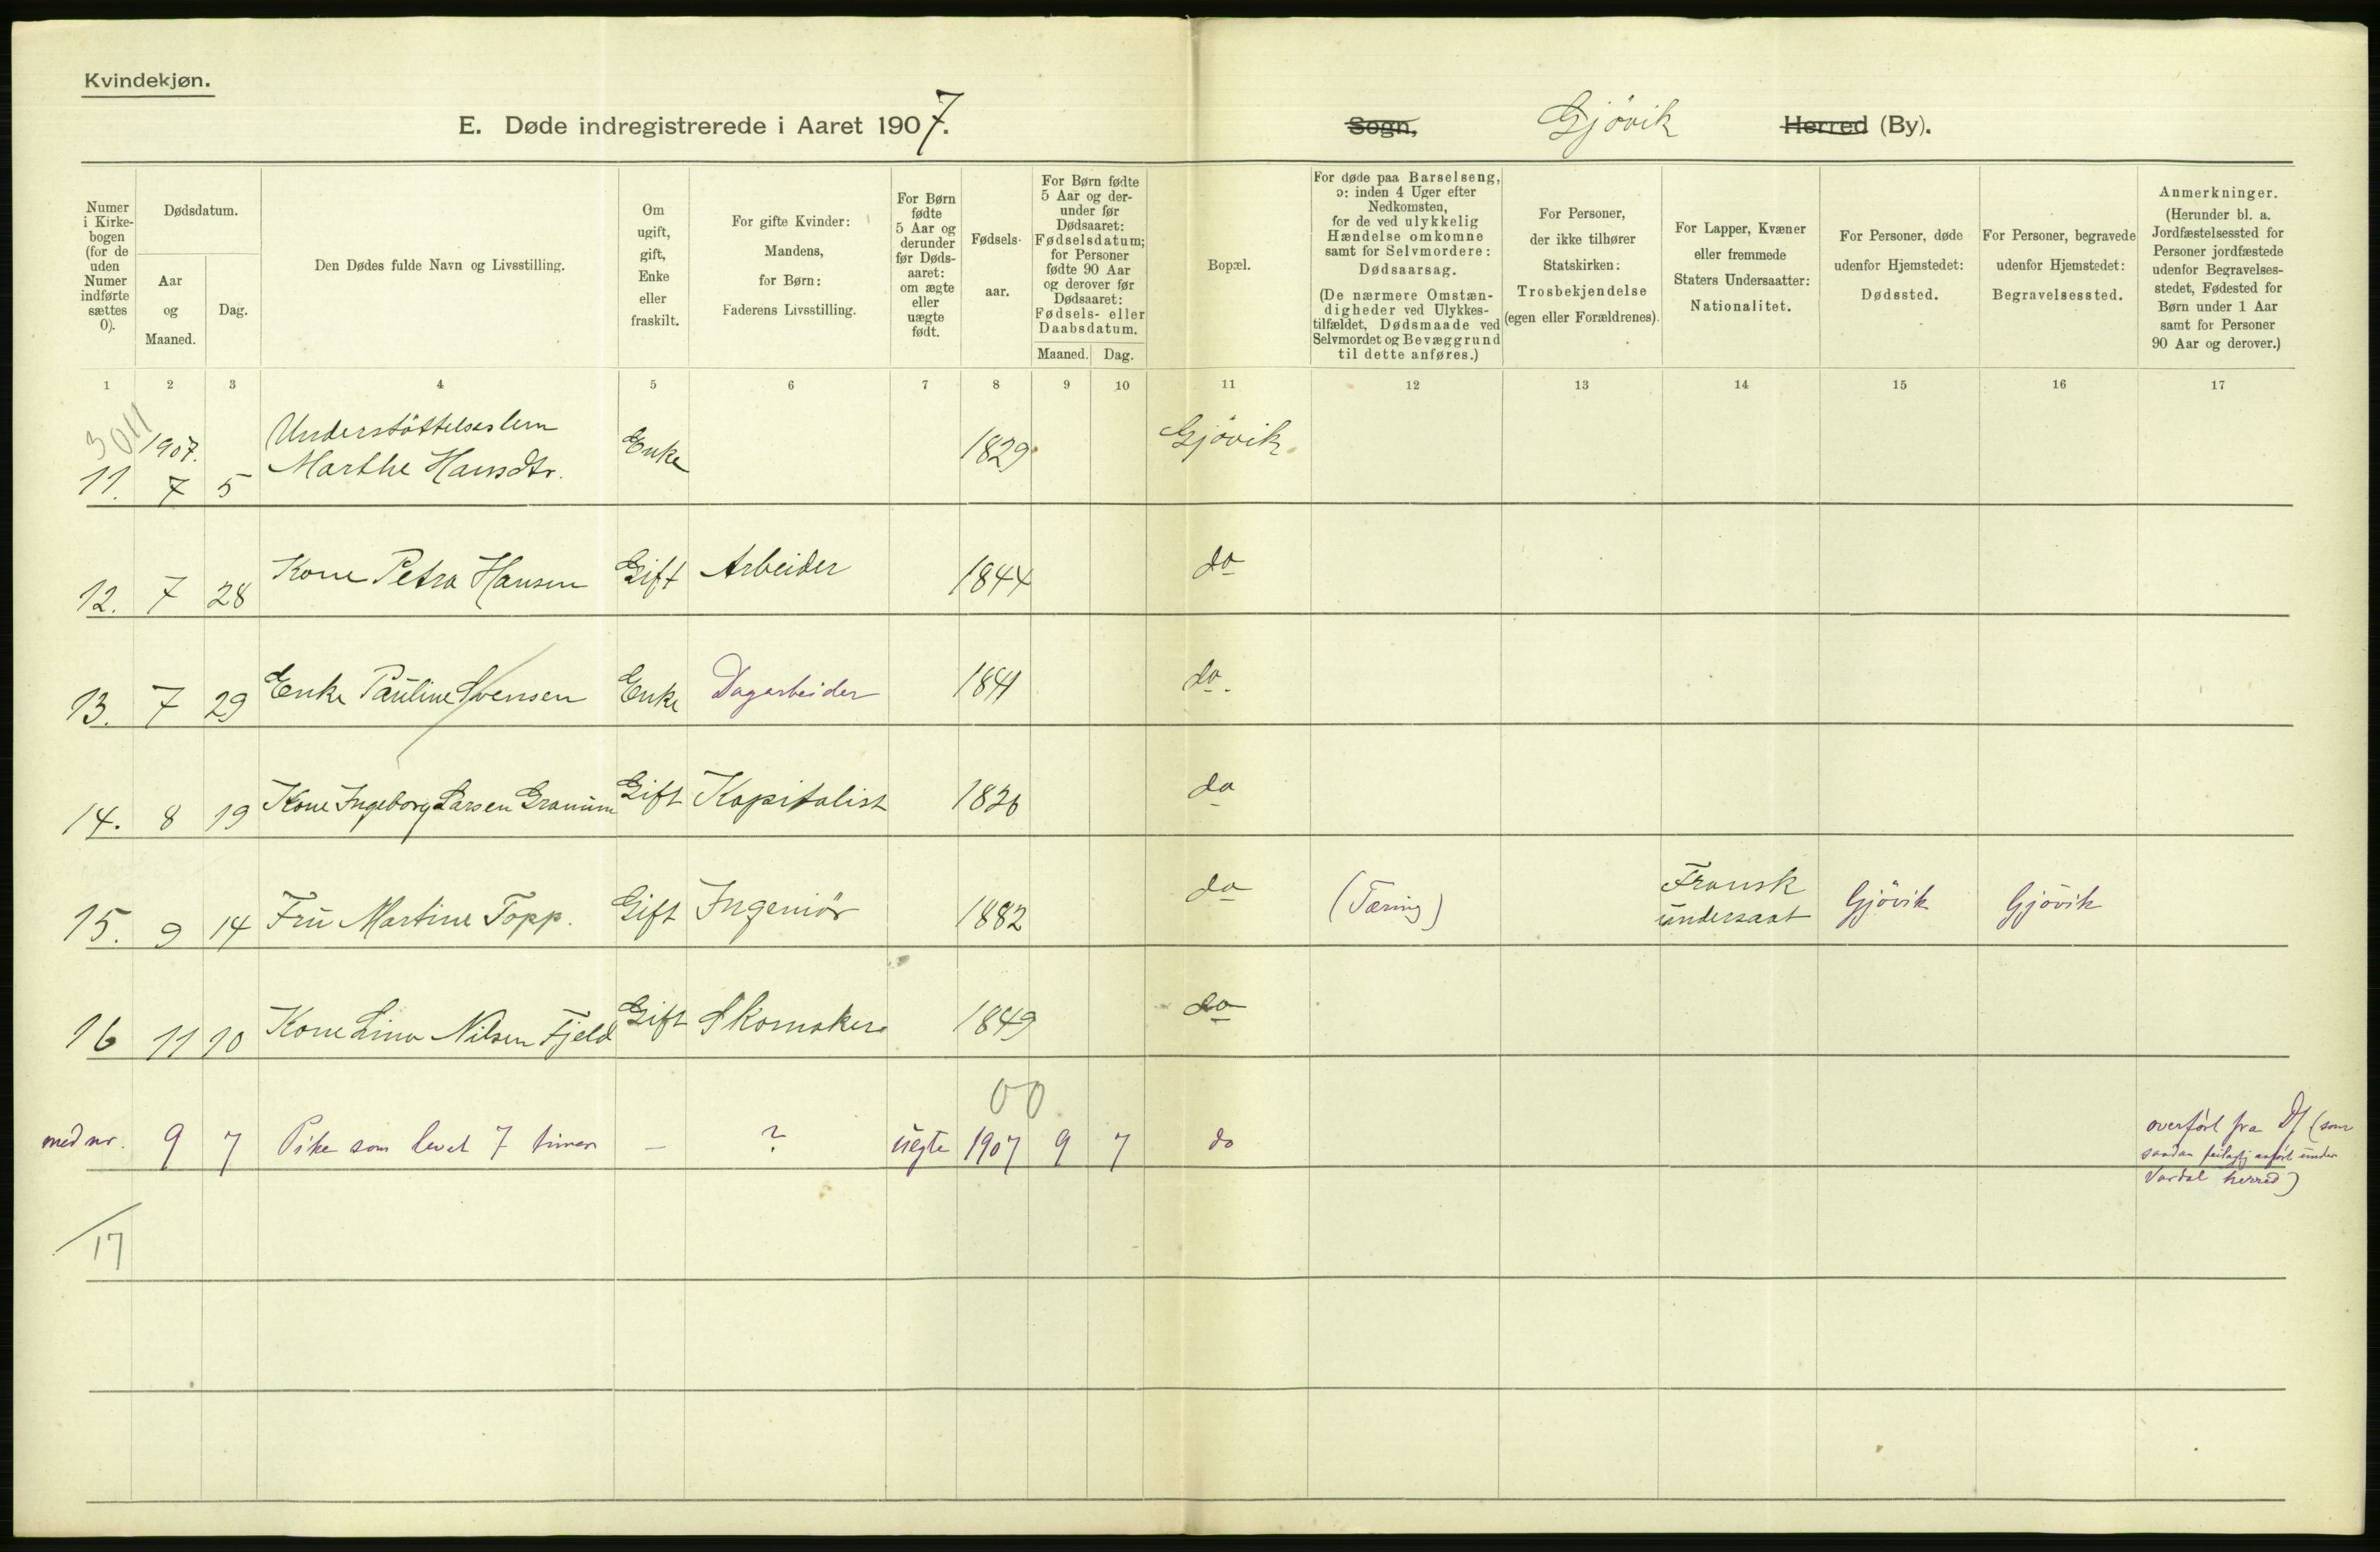 Kvindekjøn.
E. Døde indregistrerede i Aaret 1907.
Sogn, Gjövik Herred (By).
Numer i Kirke-bogen (for de uden Numer indførte sættes 0).
Dødsdatum.
Aar og Maaned.
Dag.
Den Dødes fulde Navn og Livsstilling.
Om ugift, gift, Enke eller fraskilt.
For gifte Kvinder: Mandens, for Børn: Faderens Livsstilling.
For Børn fødte 5 Aar og derunder før Døds-aaret: om ægte eller uægte født.
Fødsels-aar.
For Børn fødte 5 Aar og der-under før Dødsaaret: Fødselsdatum; for Personer fødte 90 Aar og derover før Dødsaaret: Fødsels- eller Daabsdatum.
Maaned. Dag.
Bopæl.
For døde paa Barselseng, ɔ: inden 4 Uger efter Nedkomsten, for de ved ulykkelig Hændelse omkomne samt for Selvmordere: Dødsaarsag. (De nærmere Omstæn-digheder ved Ulykkes-tilfældet, Dødsmaade ved Selvmordet og Bevæggrund til dette anføres.)
For Personer, der ikke tilhører Statskirken: Trosbekjendelse (egen eller Forældrenes).
For Lapper, Kvæner eller fremmede Staters Undersaatter: Nationalitet.
For Personer, døde udenfor Hjemstedet: Dødssted.
For Personer, begravede udenfor Hjemstedet: Begravelsessted.
Anmerkninger. (Herunder bl. a. Jordfæstelsessted for Personer jordfæstede udenfor Begravelses-stedet, Fødested for Børn under 1 Aar samt for Personer 90 Aar og derover.)
1 2 3 4 5 6 7 8 9 10 11 12 13 14 15 16 17
3011
1907. Understöttelseslem
11. 7 5 Marthe Hansdtr. Enke 1829 Gjövik
12. 7 28 Kone Petra Hansen Gift Arbeider 1844 do
13. 7 29 Enke Pauline Svensen Enke Dagarbeider 1841 do.
14. 8 19 Kone Ingeborg Larsen Granum Gift Kapitalist 1826 do
15. 9 14 Fru Martine Topp. Gift Ingeniör 1882 do (Tæring) Fransk undersaat Gjövik Gjövik
16 11 10 Kone Lina Nilsen Fjeld Gift Skomaker 1849 do
00
med nr. 9 7 Pike som levet 7 timer — ? uegte 1907 9 7 do overfört fra (som
saadan feilagtig anfört under
Vardal herred)
17